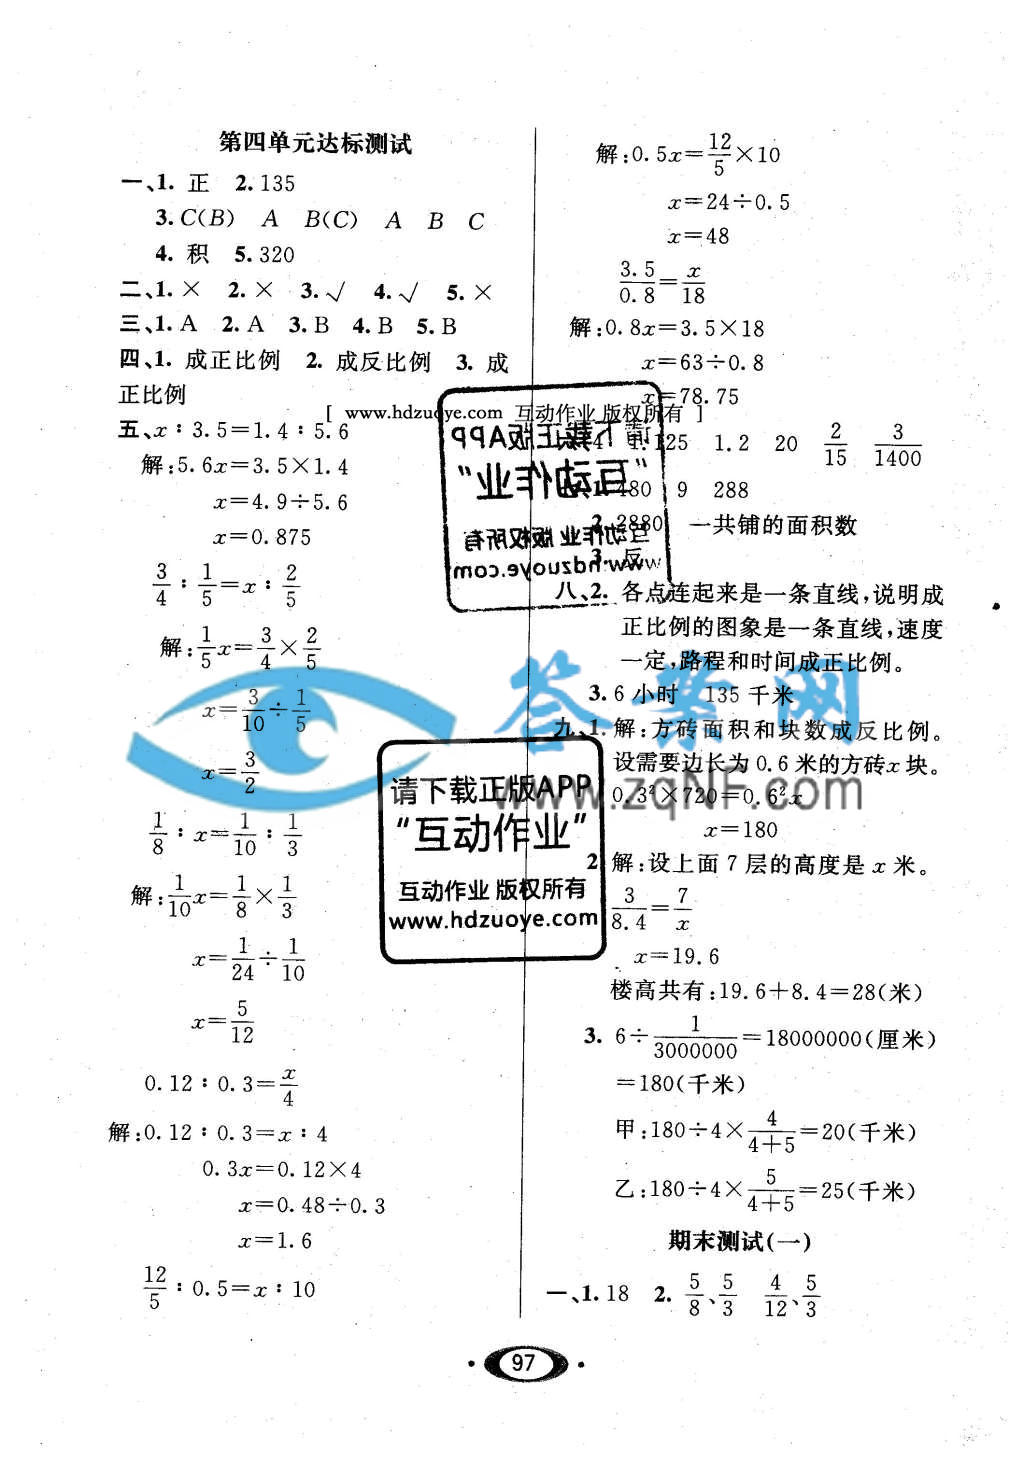 第四单元达标测试
一、1. 正 2. 135
3. C(B) A B(C) A B C
4. 积 5. 320
二、1. × 2. × 3. √ 4. √ 5. ×
三、1. A 2. A 3. B 4. B 5. B
四、1. 成正比例 2. 成反比例 3. 成
正比例
五、x∶3.5=1.4∶5.6
解:5.6x=3.5×1.4
x=4.9÷5.6
x=0.875
3/4∶1/5=x∶2/5
解:1/5x=3/4×2/5
x=3/10÷1/5
x=3/2
1/8∶x=1/10∶1/3
解:1/10x=1/8×1/3
x=1/24÷1/10
x=5/12
0.12∶0.3=x/4
解:0.12∶0.3=x∶4
0.3x=0.12×4
x=0.48÷0.3
x=1.6
12/5∶0.5=x∶10
解:0.5x=12/5×10
x=24÷0.5
x=48
3.5/0.8=x/18
解:0.8x=3.5×18
x=63÷0.8
x=78.75
[ www.hdzuoye.com 互动作业 版权所有 ]
4 1.125 1.2 20 2/15 3/1400
1. 480 9 288
2. 2880 一共铺的面积数
3. 反
八、2. 各点连起来是一条直线,说明成
正比例的图象是一条直线,速度
一定,路程和时间成正比例。
3. 6小时 135千米
九、1. 解:方砖面积和块数成反比例。
设需要边长为0.6米的方砖x块。
0.3²×720=0.6²x
x=180
2. 解:设上面7层的高度是x米。
3/8.4=7/x
x=19.6
楼高共有:19.6+8.4=28(米)
3. 6÷1/3000000=18000000(厘米)
=180(千米)
甲:180÷4×4/4+5=20(千米)
乙:180÷4×5/4+5=25(千米)
期末测试(一)
一、1. 18 2. 5/8、5/3 4/12、5/3
97
请下载正版APP
“互动作业”
互动作业 版权所有
www.hdzuoye.com
请下载正版APP
“互动作业”
互动作业 版权所有
www.hdzuoye.com
答案网
www.zqNF.com